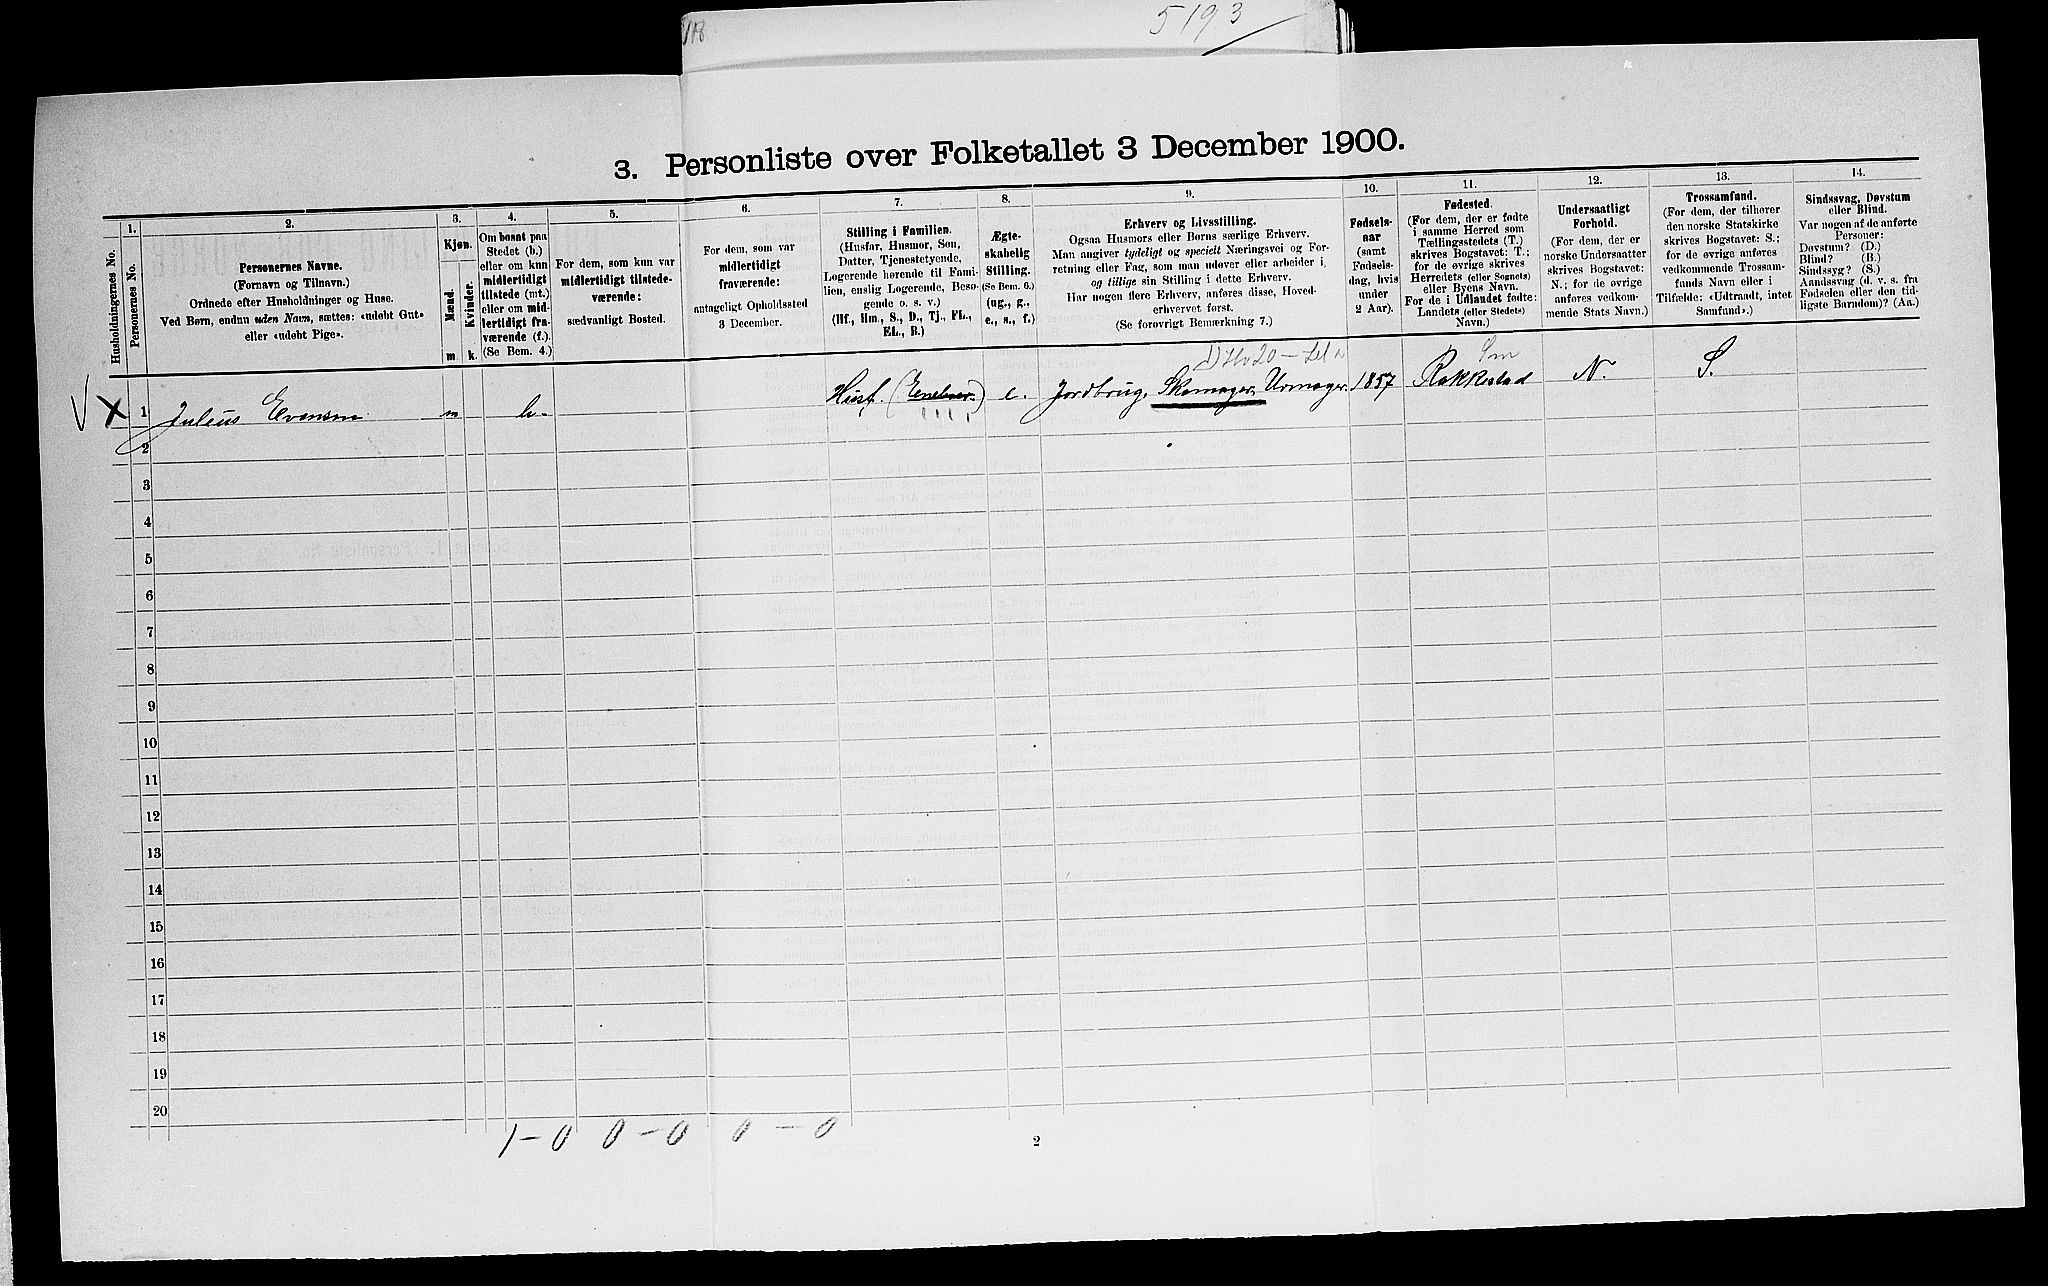 5193
3. Personliste over Folketallet 3 December 1900.
Husholdningernes No.
1.
Personernes No.
2.
Personernes Navne.
(Fornavn og Tilnavn.)
Ordnede efter Husholdninger og Huse.
Ved Børn, endnu uden Navn, sættes: «udøbt Gut»
eller «udøbt Pige».
3.
Kjøn.
Mænd.
Kvinder.
m.
k.
4.
Om bosat paa
Stedet (b.)
eller om kun
midlertidigt
tilstede (mt.)
eller om mid-
lertidigt fra-
værende (f.).
(Se Bem. 4.)
5.
For dem, som kun var
midlertidigt tilstede-
værende:
sædvanligt Bosted.
6.
For dem, som var
midlertidigt
fraværende:
antageligt Opholdssted
3 December.
7.
Stilling i Familien.
(Husfar, Husmor, Søn,
Datter, Tjenestetyende,
Logerende hørende til Fami-
lien, enslig Logerende, Besø-
gende o. s. v.)
(Hf., Hm., S., D., Tj., FL.,
EL., B.)
8.
Ægte-
skabelig
Stilling.
(Se Bem. 6.)
(ug., g.,
e., s., f.)
9.
Erhverv og Livsstilling.
Ogsaa Husmors eller Børns særlige Erhverv.
Man angiver tydeligt og specielt Næringsvei og For-
retning eller Fag, som man udøver eller arbeider i,
og tillige sin Stilling i dette Erhverv.
Har nogen flere Erhverv, anføres disse, Hoved-
erhvervet først.
(Se forøvrigt Bemærkning 7.)
10.
Fødsels-
aar
(samt
Fødsels-
dag, hvis
under
2 Aar).
11.
Fødested.
(For dem, der er fødte
i samme Herred som
Tællingsstedets (T.)
skrives Bogstavet: T.;
for de øvrige skrives
Herredets (eller Sognets)
eller Byens Navn.
For de i Udlandet fødte:
Landets (eller Stedets)
Navn.)
12.
Undersaatligt
Forhold.
(For dem, der er
norske Undersaatter
skrives Bogstavet:
N.; for de øvrige
anføres vedkom-
mende Stats Navn.)
13.
Trossamfund.
(For dem, der tilhører
den norske Statskirke
skrives Bogstavet: S.;
for de øvrige anføres
vedkommende Trossam-
funds Navn eller i
Tilfælde: «Udtraadt, intet
Samfund».)
14.
Sindssvag, Døvstum
eller Blind.
Var nogen af de anførte
Personer:
Døvstum? (D.)
Blind? (B.)
Sindssyg? (S.)
Aandssvag (d. v. s. fra
Fødselen eller den tid-
ligste Barndom)? (Aa.)
Sm
1 Julius Evensen m b. Husf. (Enebuer) e. Jordbrug, Skomager, Urmager. 1857 Rakkestad N. S.
2
3
4
5
6
7
8
9
10
11
12
13
14
15
16
17
18
19
20
1-0 0-0 0-0
2